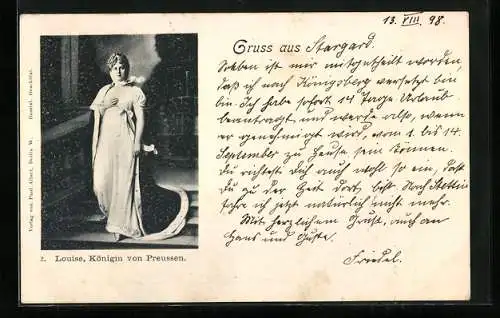 13. VIII. 98.
Gruss aus Stargard.
Soeben ist mir mitgetheilt worden
daß ich nach Königsberg versetzt bin
bin. Ich habe sofort 14 Tage Urlaub
beantragt, und werde also, wenn
er genehmigt wird, vom 1. bis 14.
September zu Hause sein können.
Du richtest Dich auch wohl so ein, daß
Du zu der Zeit dort bist. Nach Stettin
fahre ich jetzt natürlich nicht mehr.
Mit herzlichem Gruß, auch an
Hans und Guste.
Friedel.
Verlag von Paul Albert, Berlin W.
2. Louise, Königin von Preussen.